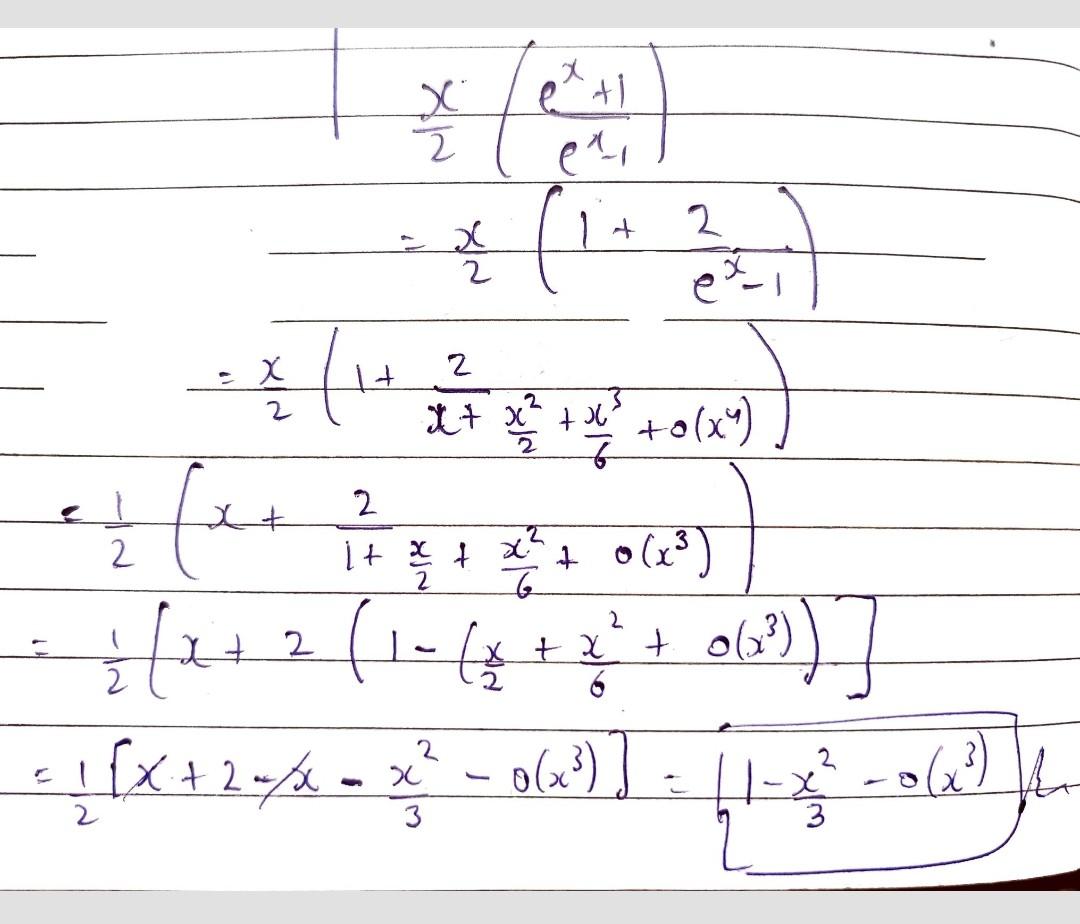 x/2 ( (e^x + 1)/(e^x - 1) )
= x/2 ( 1 + 2/(e^x - 1) )
= x/2 ( 1 + 2/(x + x^2/2 + x^3/6 + o(x^4)) )
= 1/2 ( x + 2/(1 + x/2 + x^2/6 + o(x^3)) )
= 1/2 [ x + 2 ( 1 - ( x/2 + x^2/6 + o(x^3) ) ]
= 1/2 [ x + 2 - x - x^2/3 - o(x^3) ] = 1 - x^2/3 - o(x^3)